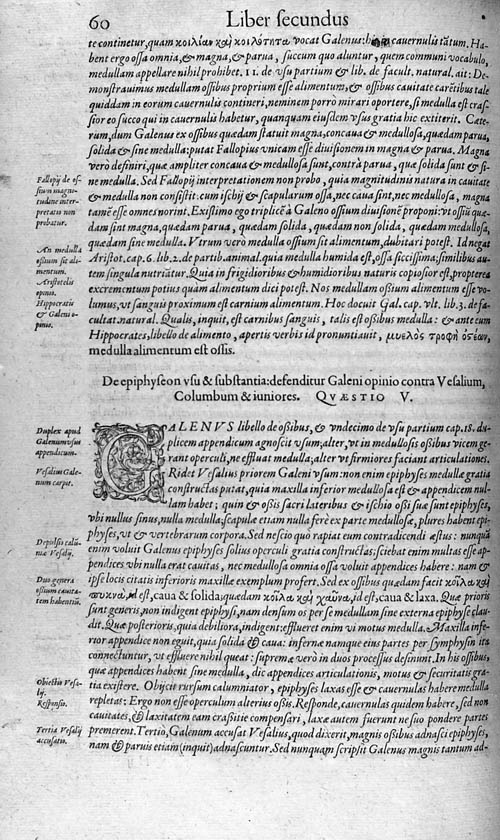 60
Liber secundus
te continetur, quam κοιλίαν καὶ κοιλότητα vocat Galenus: hoc cauernulis tãtum. Ha-
bent ergo ossa omnia, & magna, & parua, succum quo aluntur, quem communi vocabulo,
medullam appellare nihil prohibet. 11. de vsu partium & lib. de facult. natural. ait: De-
monstrauimus medullam ossibus proprium esse alimentum, & ossibus cauitate carẽtibus tale
quiddam in eorum cauernulis contineri, neminem porrò mirari oportere, si medulla est cras-
sior eo succo qui in cauernulis habetur, quanquam eiusdem vsus gratia hic extiterit. Cæte-
rum, dum Galenus ex ossibus quædam statuit magna, concaua & medullosa, quædam parua,
solida & sine medulla: putat Fallopius vnicam esse diuisionem in magna & parua. Magna
verò definiri, quæ ampliter concaua & medullosa sunt, contrà parua, quæ solida sunt & si-
ne medulla. Sed Fallopij interpretationem non probo, quia magnitudinis natura in cauitate
& medulla non consistit: cum ischij & scapularum ossa, nec caua sint, nec medullosa, magna
tamẽ esse omnes norint. Existimo ego triplicẽ à Galeno ossium diuisionẽ proponi: vt ossiũ quæ-
dam sint magna, quædam parua, quædam solida, quædam non solida, quædam medullosa,
quædam sine medulla. Vtrum verò medulla ossium sit alimentum, dubitari potest. Id negat
Aristot. cap. 6. lib. 2. de partib. animal. quia medulla humida est, ossa siccissima; similibus au-
tem singula nutriãtur. Quia in frigidioribus & humidioribus naturis copiosior est, propterea
excrementum potius quàm alimentum dici potest. Nos medullam ossium alimentum esse vo-
lumus, vt sanguis proximum est carnium alimentum. Hoc docuit Gal. cap. vlt. lib. 3. de fa-
cultat. natural. Qualis, inquit, est carnibus sanguis, talis est ossibus medulla: & ante eum
Hippocrates, libello de alimento, apertis verbis id pronuntiauit, μυελὸς τροφὴ ὀστέων,
medulla alimentum est ossis.
Fallopij de os-
sium magni-
tudine inter-
pretatio non
probatur.
An medulla
ossium sit ali-
mentum.
Aristotelis
opinio.
Hippocratis
& Galeni o-
pinio.
De epiphyseωn vsu & substantia: defenditur Galeni opinio contra Vesalium,
Columbum & iuniores. QVÆSTIO V.
GALENVS libello de ossibus, & vndecimo de vsu partium cap. 18. du-
plicem appendicum agnoscit vsum; alter, vt in medullosis ossibus vicem ge-
rant operculi, ne effluat medulla; alter vt firmiores faciant articulationes.
Ridet Vesalius priorem Galeni vsum: non enim epiphyses medullæ gratia
constructas putat, quia maxilla inferior medullosa est & appendicem nul-
lam habet; quin & ossis sacri lateribus & ischio ossi suæ sunt epiphyses,
vbi nullus sinus, nulla medulla; scapulæ etiam nulla ferè ex parte medullosæ, plures habent epi-
physes, vt & vertebrarum corpora. Sed nescio quo rapiat eum contradicendi æstus: nunquã
enim voluit Galenus epiphyses solius operculi gratia constructas; sciebat enim multas esse ap-
pendices vbi nulla erat cauitas, nec medullosa omnia ossa voluit appendices habere: nam &
ipse locis citatis inferioris maxillæ exemplum profert. Sed ex ossibus quædam facit κοῖλα καὶ
πυκνὰ, id est, caua & solida; quædam κοῖλα καὶ χαῦνα, id est, caua & laxa. Quæ prioris
sunt generis, non indigent epiphysi, nam densum os per se medullam sine externa epiphyse clau-
dit. Quæ posterioris, quia debiliora, indigent; efflueret enim vi motus medulla. Maxilla infe-
rior appendice non eguit, quia solida & caua: infernæ namque eius partes per symphysin ita
connectuntur, vt effluere nihil queat: supremæ verò in duos processus desinunt. In his ossibus,
quæ appendices habent sine medulla, dic appendices articulationis, motus & securitatis gra-
tia existere. Obijcit rursum calumniator, epiphyses laxas esse & cauernulas habere medulla
repletas: Ergo non esse operculum alterius ossis. Responde, cauernulas quidem habere, sed non
cauitates, & laxitatem eam crassitie compensari, laxæ autem fuerunt ne suo pondere partes
premerent. Tertiò, Galenum accusat Vesalius, quod dixerit, magnis ossibus adnasci epiphyses,
nam & paruis etiam (inquit) adnascuntur. Sed nunquam scripsit Galenus magnis tantum ad-
Duplex apud
Galenum vsus
appendicum.
Vesalij Gale-
num carpit.
Depulsio calũ-
niæ Vesalij.
Duo genera
ossium cauita-
tem habentiũ.
Obiectio Vesa-
lij.
Responsio.
Tertia Vesalij
accusatio.